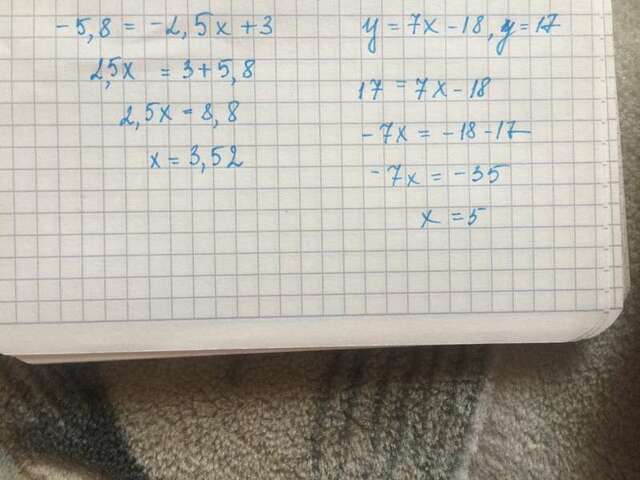 -5,8 = -2,5x + 3
2,5x = 3 + 5,8
2,5x = 8,8
x = 3,52
y = 7x - 18, y = 17
17 = 7x - 18
-7x = -18 - 17
-7x = -35
x = 5